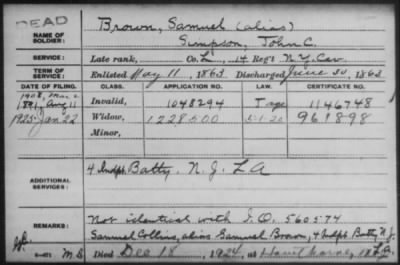 DEAD
NAME OF SOLDIER:
Brown, Samuel (alias)
Simpson, John C.
SERVICE:
Late rank, Co. L, 14 Reg't N.Y. Cav.
TERM OF SERVICE:
Enlisted May 11, 1863 Discharged June 30, 1863
DATE OF FILING. CLASS. APPLICATION NO. LAW. CERTIFICATE NO.
1891, Aug 11 Invalid, 1048294 1146748
1925 Jan 22 Widow, 1228500 5-1-20 961898
Minor,
ADDITIONAL SERVICES:
4 Indpt. Batty. N.J. L A
REMARKS:
Not identical with I.O. 560574
Samuel Collins, alias Samuel Brown, 4 Indpt Batty N.J.
Died Dec 18, 1924, at